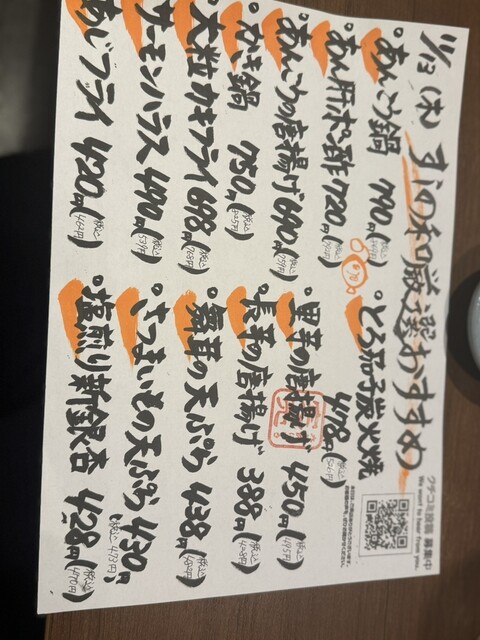 11/13(木)
すしの和厳選おすすめ
クチコミ投稿 募集中
We want to hear from you.
あんこう鍋 790円(税込869円)
あん肝ポン酢 720円(税込792円)
あんこうの唐揚げ 690円(税込759円)
かき鍋 750円(税込825円)
大粒カキフライ 698円(税込768円)
サーモンハラス 490円(税込539円)
あじフライ 420円(税込462円)
とろ茄子炭火焼 478円(税込526円)
里芋の唐揚げ 450円(税込495円)
長芋の唐揚げ 388円(税込428円)
舞茸の天ぷら 438円(税込482円)
さつまいもの天ぷら 430円(税込473円)
塩煎り新銀杏 428円(税込470円)